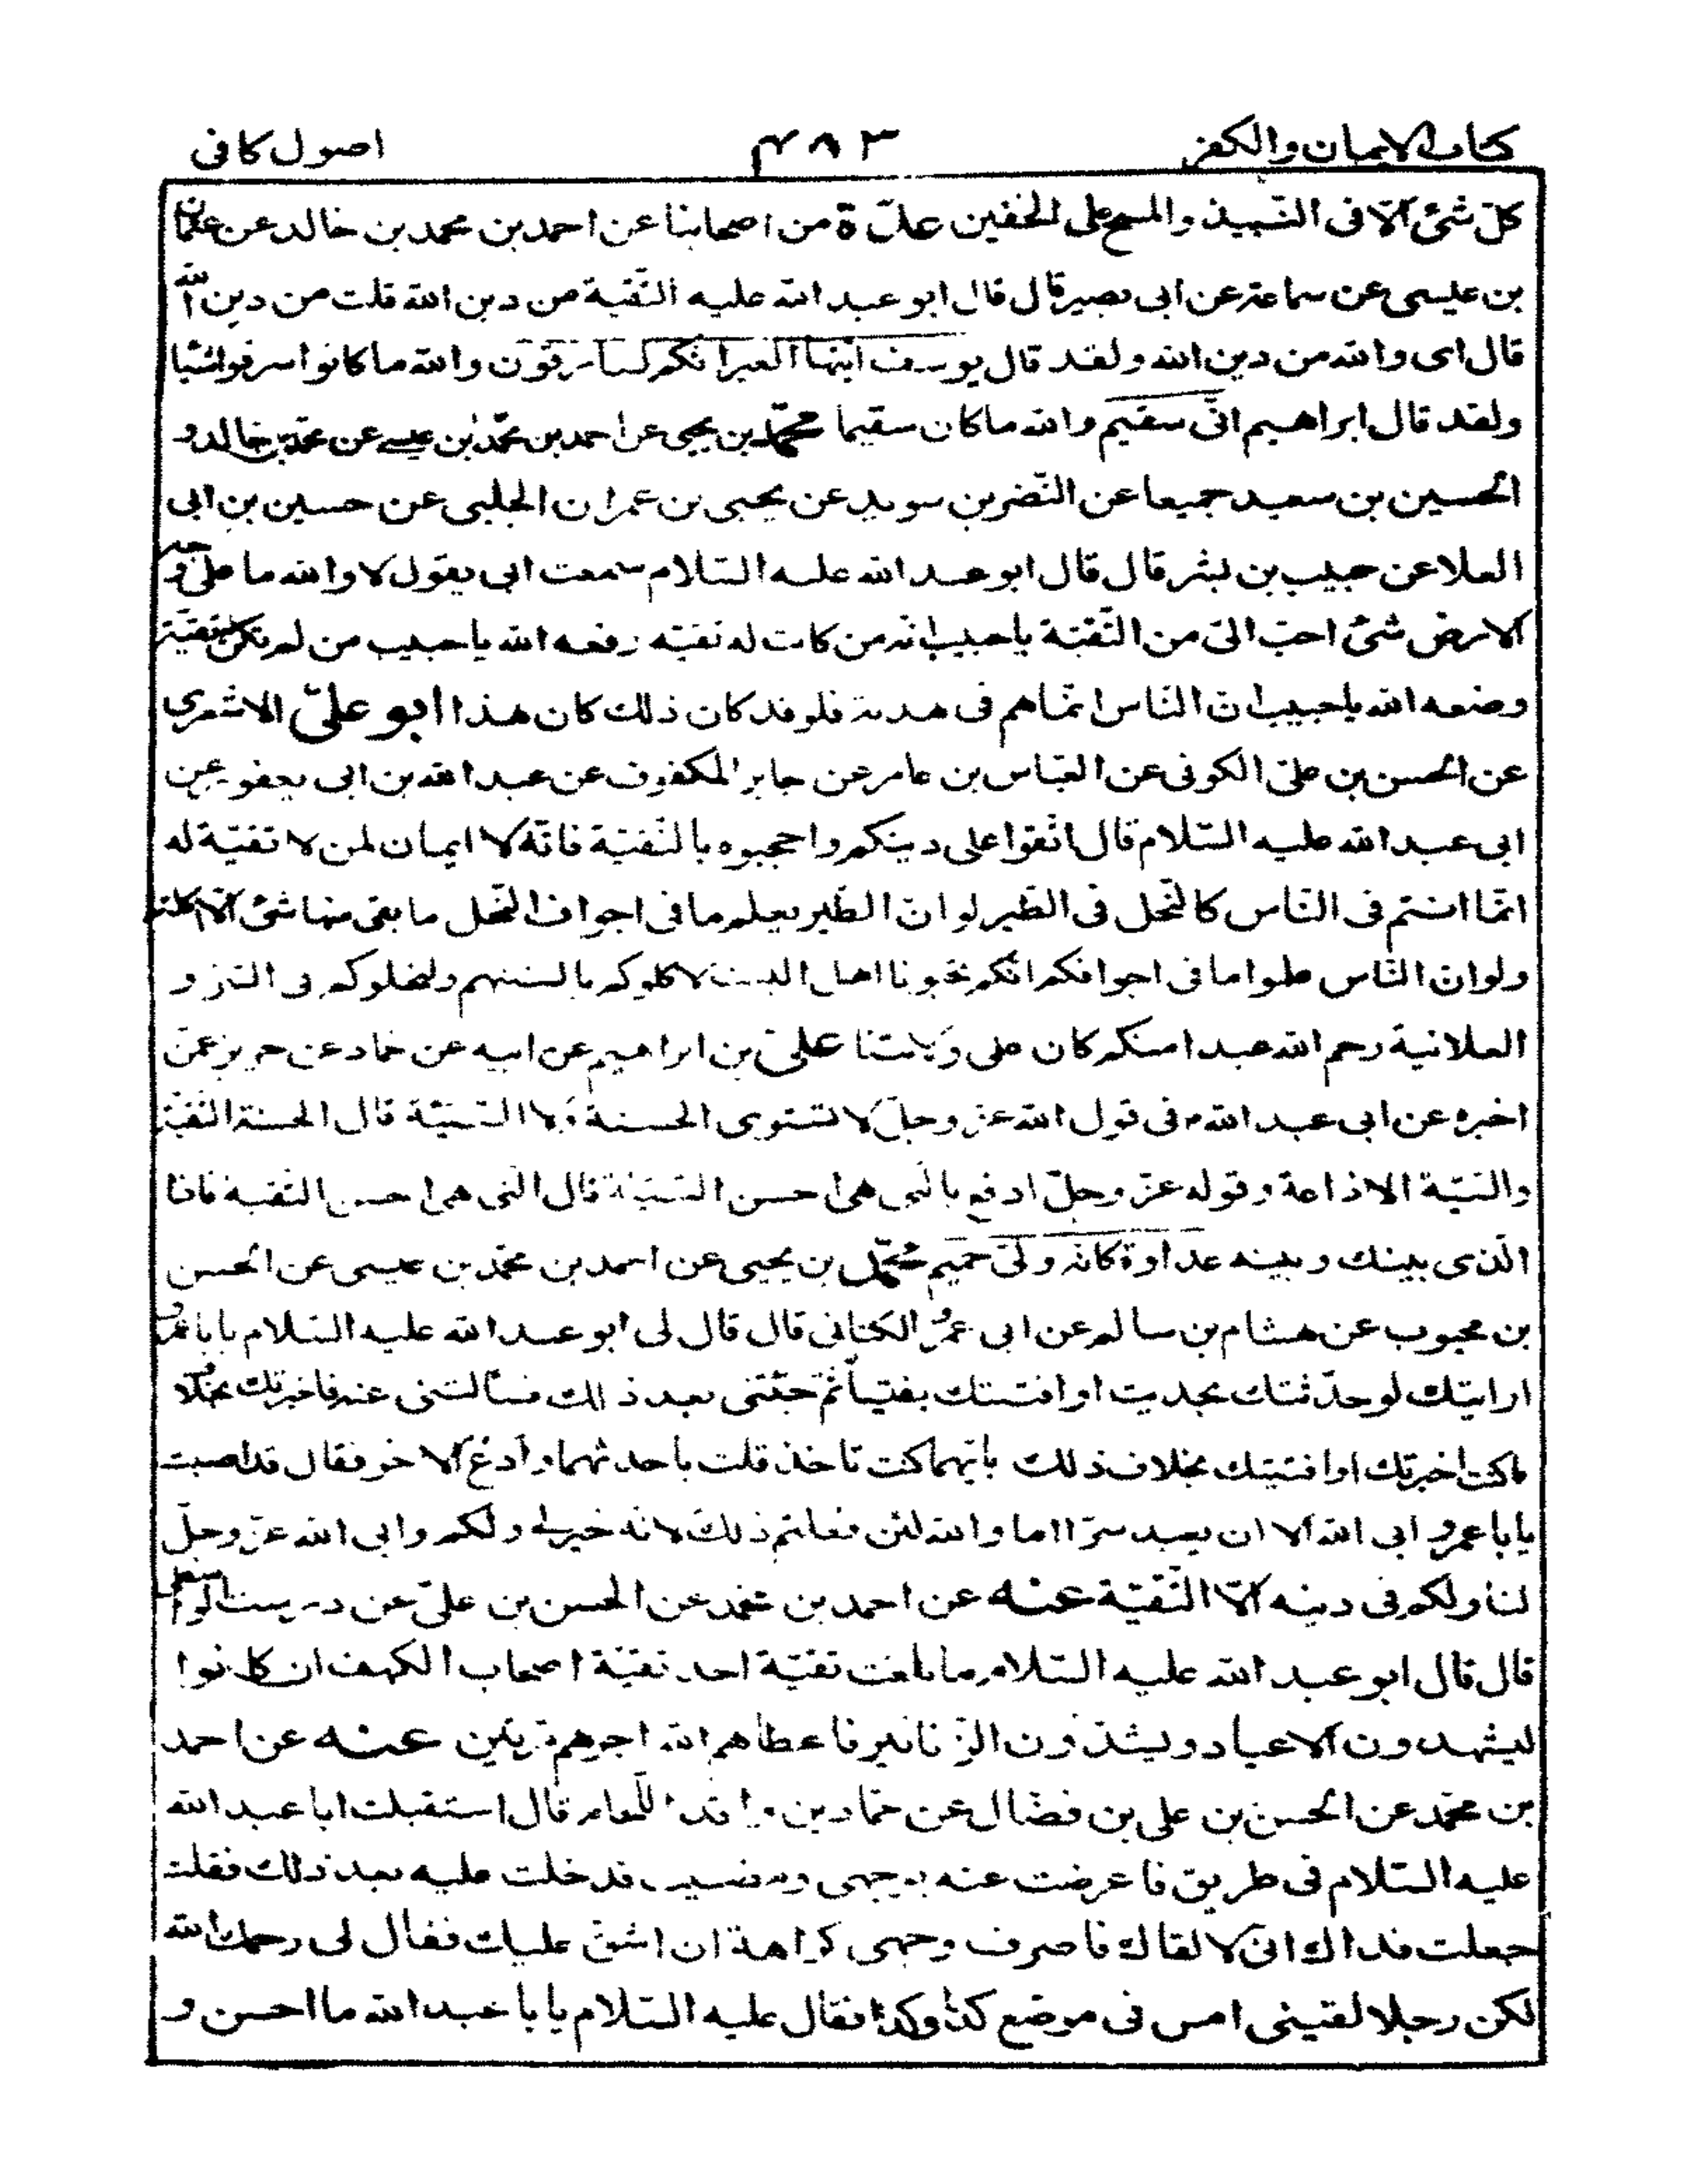 كتاب الايمان والكفر ۴۸۳ اصول كافى
كلّ شئ الّا فى النّبيذ والمسح على الخفين عدّة من اصحابنا عن احمد بن محمد بن خالد عن عثمان
بن عليسى عن سماعة عن ابى بصير قال قال ابو عبد الله عليه التّقية من دين الله قلت من دين الله
قال اى والله من دين الله ولقد قال يوسف ايّتها العير انكم لسارقون والله ما كانوا سرقوا شيئا
ولقد قال ابراهيم انّى سقيم والله ما كان سقيما محمّد بن يحيى عن احمد بن محمّد بن عيسى عن محمّد بن خالد و
الحسين بن سعيد جميعا عن النّضر بن سويد عن يحيى بن عمران الحلبى عن حسين بن ابى
العلا عن حبيب بن بشر قال قال ابو عبد الله عليه السّلام سمعت ابى يقول لا والله ما على وجه
الارض شئ احبّ الىّ من التّقيّة يا حبيب انه من كانت له تقيّه رفعه الله يا حبيب من لم تكن له تقيّة
وضعه الله يا حبيب انّ النّاس انّما هم فى هدنة فلو قد كان ذلك كان هذا ابو علىّ الاشعرى
عن الحسن بن علىّ الكوفى عن العبّاس بن عامر عن جابر المكفوف عن عبد الله بن ابى يعفور عن
ابى عبد الله عليه السّلام قال اتّقوا على دينكم واحجبوه بالتّقيّة فانّه لا ايمان لمن لا تقيّة له
انّما انتم فى النّاس كالنّحل فى الطّير لو انّ الطّير يعلم ما فى اجواف النّحل ما بقى منها شئ الّا اكلته
ولو انّ النّاس علموا ما فى اجوافكم انّكم تحبّونا اهل البيت لاكلوكم بالسنتهم ولنحلوكم فى السّرّ و
العلانية رحم الله عبدا منكم كان على ولايتنا علىّ بن ابراهيم عن ابيه عن حماد عن حريز عمّن
اخبره عن ابى عبد الله ع فى قول الله عزّ وجلّ لا تستوى الحسنة ولا السّيّئة قال الحسنة التّقيّة
والسّيّئة الاذاعة وقوله عزّ وجلّ ادفع بالّتى هى احسن السّيّئة قال الّتى هى احسن التّقية فاذا
الّذى بينك وبينه عداوة كانّه ولىّ حميم محمّد بن يحيى عن احمد بن محمّد بن عيسى عن الحسن
بن محبوب عن هشام بن سالم عن ابى عمرو الكنانى قال قال لى ابو عبد الله عليه السّلام يابا عمرو
ارايتك لو حدّثتك بحديث او افتيتك بفتيا ثمّ جئتنى بعد ذلك فسألتنى عنه فاخبرتك بخلاف
ما كنت اخبرتك او افتيتك بخلاف ذلك بايّهما كنت تاخذ قلت باحدثهما وادع الاخر فقال قد اصبت
يابا عمرو ابى الله الا ان يعبد سرّا اما والله لئن فعلتم ذلك لانّه خير لى ولكم وابى الله عزّ وجلّ
لنا ولكم فى دينه الّا التّقيّة عنه عن احمد بن محمد عن الحسن بن علىّ عن درست الواسطى
قال قال ابو عبد الله عليه السّلام ما بلغت تقيّة احد تقيّة اصحاب الكهف ان كانوا
ليشهدون الاعياد ويشدّون الزّنانير فاعطاهم الله اجرهم مرّتين عنه عن احمد
بن محمّد عن الحسن بن على بن فضّال عن حمّاد بن واقد اللّحام قال استقبلت ابا عبد الله
عليه السّلام فى طريق فاعرضت عنه بوجهى ومضيت فدخلت عليه بعد ذلك فقلت
جعلت فداك انّى لالقاك فاصرف وجهى كراهة ان اشقّ عليك فقال لى رحمك الله
لكن رجلا لقينى امس فى موضع كذا وكذا فقال عليه السّلام يابا عبد الله ما احسن و